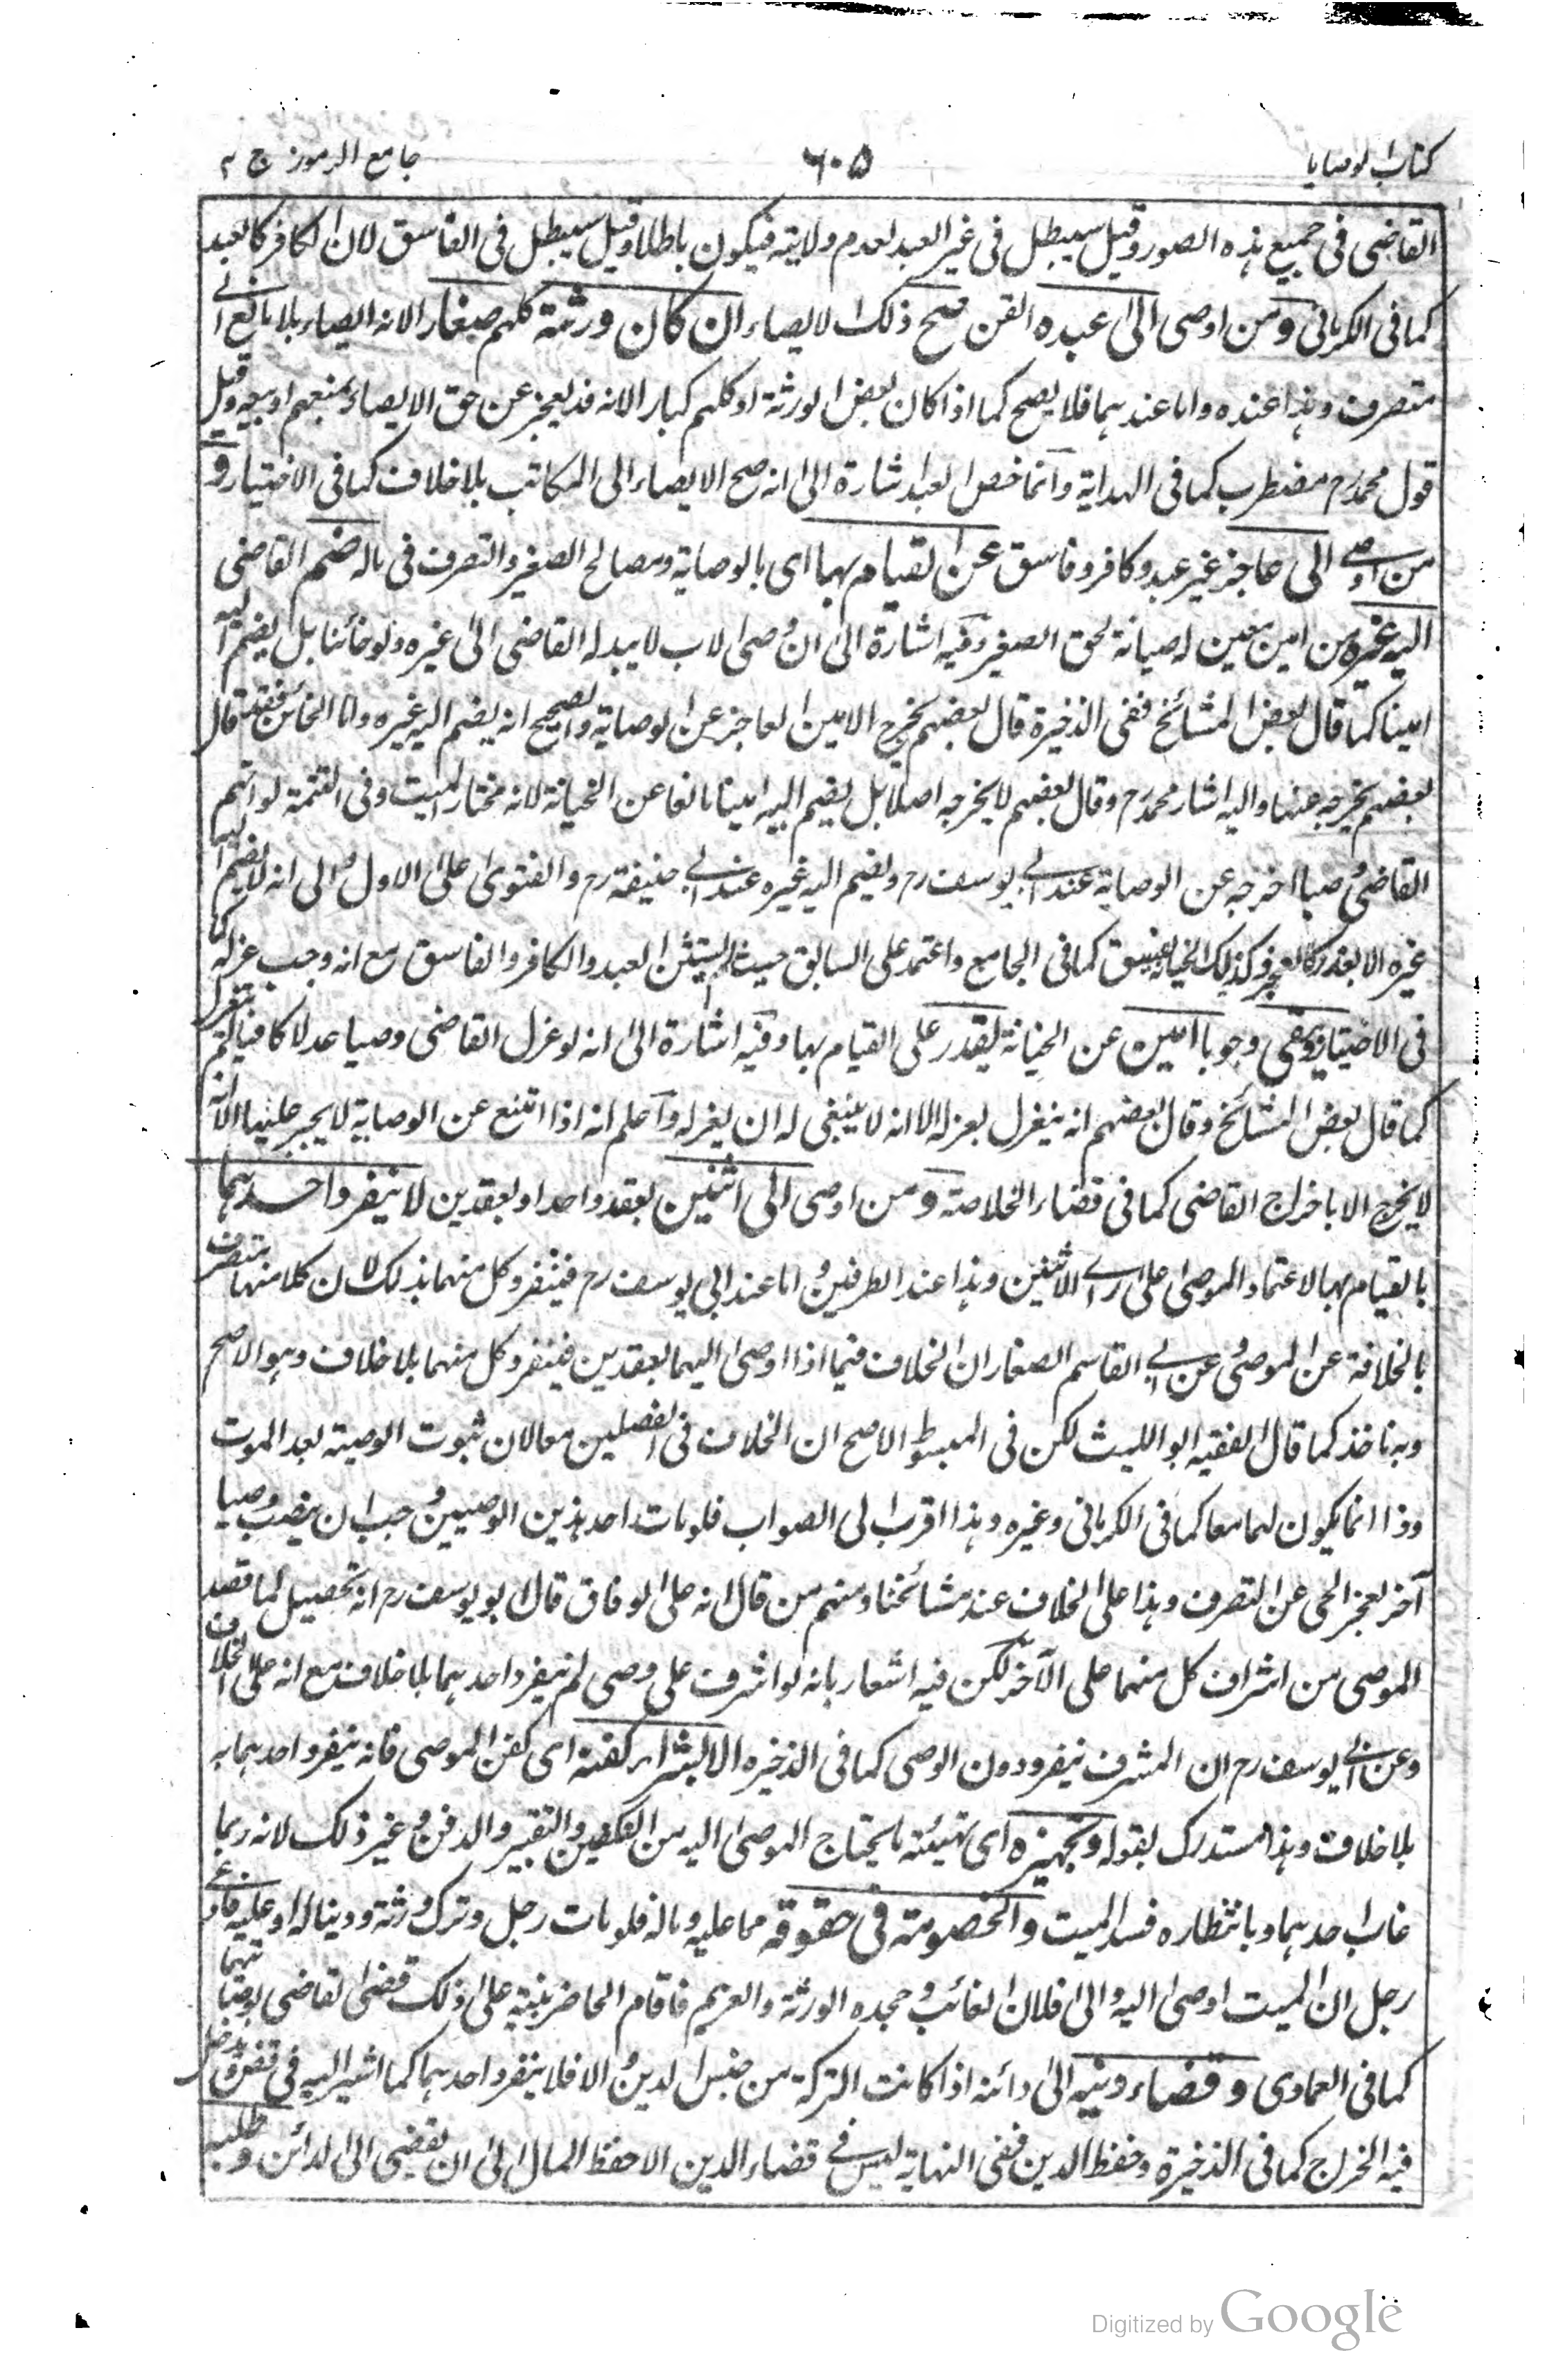 كتاب الوصايا
٦٠٥
جامع الرموز ج ٢
القاضى فى جميع هذه الصور وقيل سيبطل فى غير العبد لعدم ولايته فيكون باطلا وقيل سيبطل فى الفاسق لان الكافر كالعبد
كما فى الكرمانى ومن اوصى الى عبده القن صح ذلك الايصاء ان كان ورثته كلهم صغارا لانه ايصاء بلا مانع الى
متصرف وهذا عنده واما عندهما فلا يصح كما اذا كان بعض الورثة او كلهم كبارا لانه قد يعجز عن حق الايصاء بمنعهم او بيعه وقيل
قول محمد رح مضطرب كما فى الهداية وانما خص العبد اشارة الى انه صح الايصاء الى المكاتب بلا خلاف كما فى الاختيار و
من اوصى الى عاجز غير عبد وكافر وفاسق عن القيام بها اى بالوصاية ومصالح الصغير والتصرف فى ماله ضم القاضى
اليه غيره من امين معين له صيانة لحق الصغير وفيه اشارة الى ان وصى الاب لا يبدله القاضى الى غيره ولو خائنا بل يضم اليه
امينا كما قال بعض المشائخ ففى الذخيرة قال بعضهم يخرج الامين العاجز عن الوصاية والصحيح انه يضم اليه غيره واما الخائن فقد قال
بعضهم يخرجه عنها واليه اشار محمد رح وقال بعضهم لا يخرجه اصلا بل يضم اليه امينا مانعا عن الخيانة لانه مختار الميت وفى التتمة لو اتهم
القاضى وصيا اخرجه عن الوصاية عند ابى يوسف رح ويضم اليه غيره عند ابى حنيفة رح والفتوى على الاول والى انه لا يضم اليه
غيره الا بعذر كالعجز وكذلك الخيانة والفسق كما فى الجامع واعتمد على السابق حيث لم يستثن العبد والكافر والفاسق مع انه وجب عزله كما
فى الاختيار ويبقى وجوبا امين عن الخيانة يقدر على القيام بها وفيه اشارة الى انه لو عزل القاضى وصيا عدلا كافيا لم ينعزل
كما قال بعض المشائخ وقال بعضهم انه ينعزل بعزله الا انه لا ينبغى له ان يعزله واعلم انه اذا امتنع عن الوصاية لا يجبر عليها الا انه
لا يخرج الا باخراج القاضى كما فى قضاء الخلاصة ومن اوصى الى اثنين بعقد واحد او بعقدين لا ينفرد احدهما
بالقيام بها لاعتماد الموصى على راى الاثنين وهذا عند الطرفين واما عند ابى يوسف رح فينفرد كل منهما بذلك لان كلا منهما متصرف
بالخلافة عن الموصى وعن ابى القاسم الصفار ان الخلاف فيما اذا اوصى اليهما بعقدين فينفرد كل منهما بلا خلاف وهو الاصح
وبه ناخذ كما قال الفقيه ابو الليث لكن فى المبسوط الاصح ان الخلاف فى الفصلين معا لان ثبوت الوصية بعد الموت
وذا انما يكون لهما معا كما فى الكرمانى وغيره وهذا اقرب الى الصواب فلو مات احد هذين الوصيين وجب ان ينصب وصيا
آخر لعجز الحى عن التصرف وهذا على الخلاف عند مشائخنا ومنهم من قال انه على الوفاق قال ابو يوسف رح انه تحصيل لما قصد
الموصى من اشراف كل منهما على الآخر لكن فيه اشعار بانه لو اشرف على وصى لم ينفرد احدهما بلا خلاف مع انه على الخلاف
وعن ابى يوسف رح ان المشرف ينفرد دون الوصى كما فى الذخيره الا بشراء كفنه اى كفن الموصى فانه ينفرد احدهما به
بلا خلاف وهذا مستدرك بقوله وتجهيزه اى تهيئة ما يحتاج الموصى اليه من التكفين والتقبير والدفن وغير ذلك لانه ربما
غاب احدهما وبانتظاره فسد الميت والخصومة فى حقوقه مما عليه وماله فلو مات رجل وترك ورثة ودينا له او عليه فادعى
رجل ان الميت اوصى اليه والى فلان الغائب وجحده الورثة والغريم فاقام الحاضر بينة على ذلك قضى القاضى بوصايتهما
كما فى العمادى وقضاء دينه الى دائنه اذا كانت التركة من جنس الدين والا فلا ينفرد احدهما كما اشير اليه فى قضى ويدخل
فيه الخراج كما فى الذخيرة وحفظ الدين ففى النهاية ليس فى قضاء الدين الا حفظ المال الى ان يقضى الى الدائن وطلبه
Digitized by Google